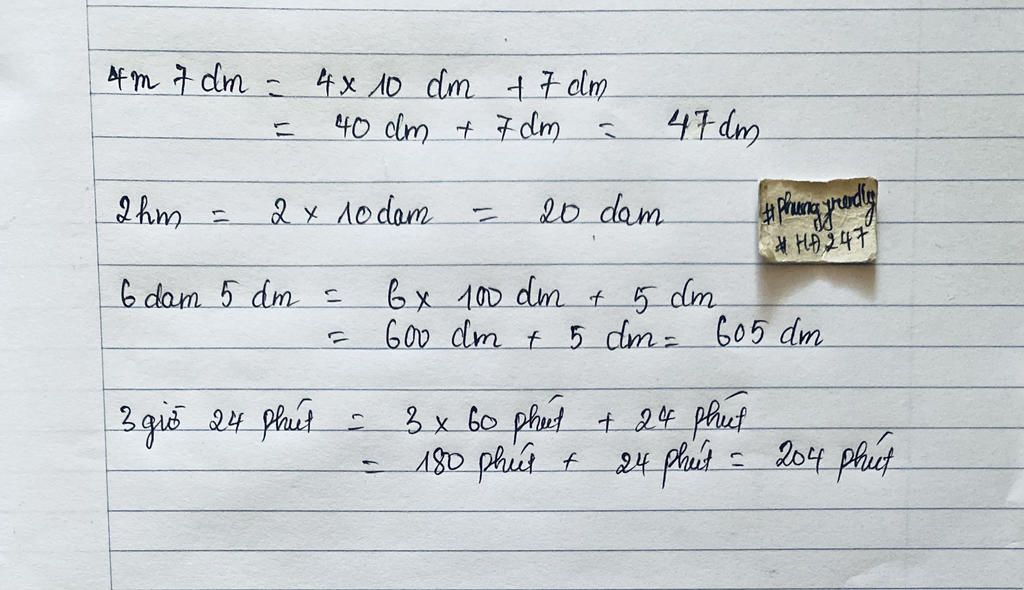 4m 7 dm = 4 x 10 dm + 7 dm
= 40 dm + 7 dm = 47 dm
2hm = 2 x 10 dam = 20 dam
6 dam 5 dm = 6 x 100 dm + 5 dm
= 600 dm + 5 dm = 605 dm
3 giờ 24 phút = 3 x 60 phút + 24 phút
= 180 phút + 24 phút = 204 phút
# HĐ247